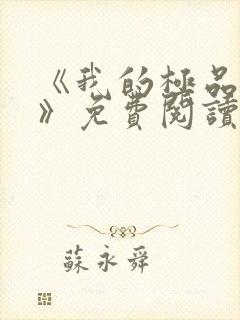 《我的極品
》免費閱讀
蘇永舜